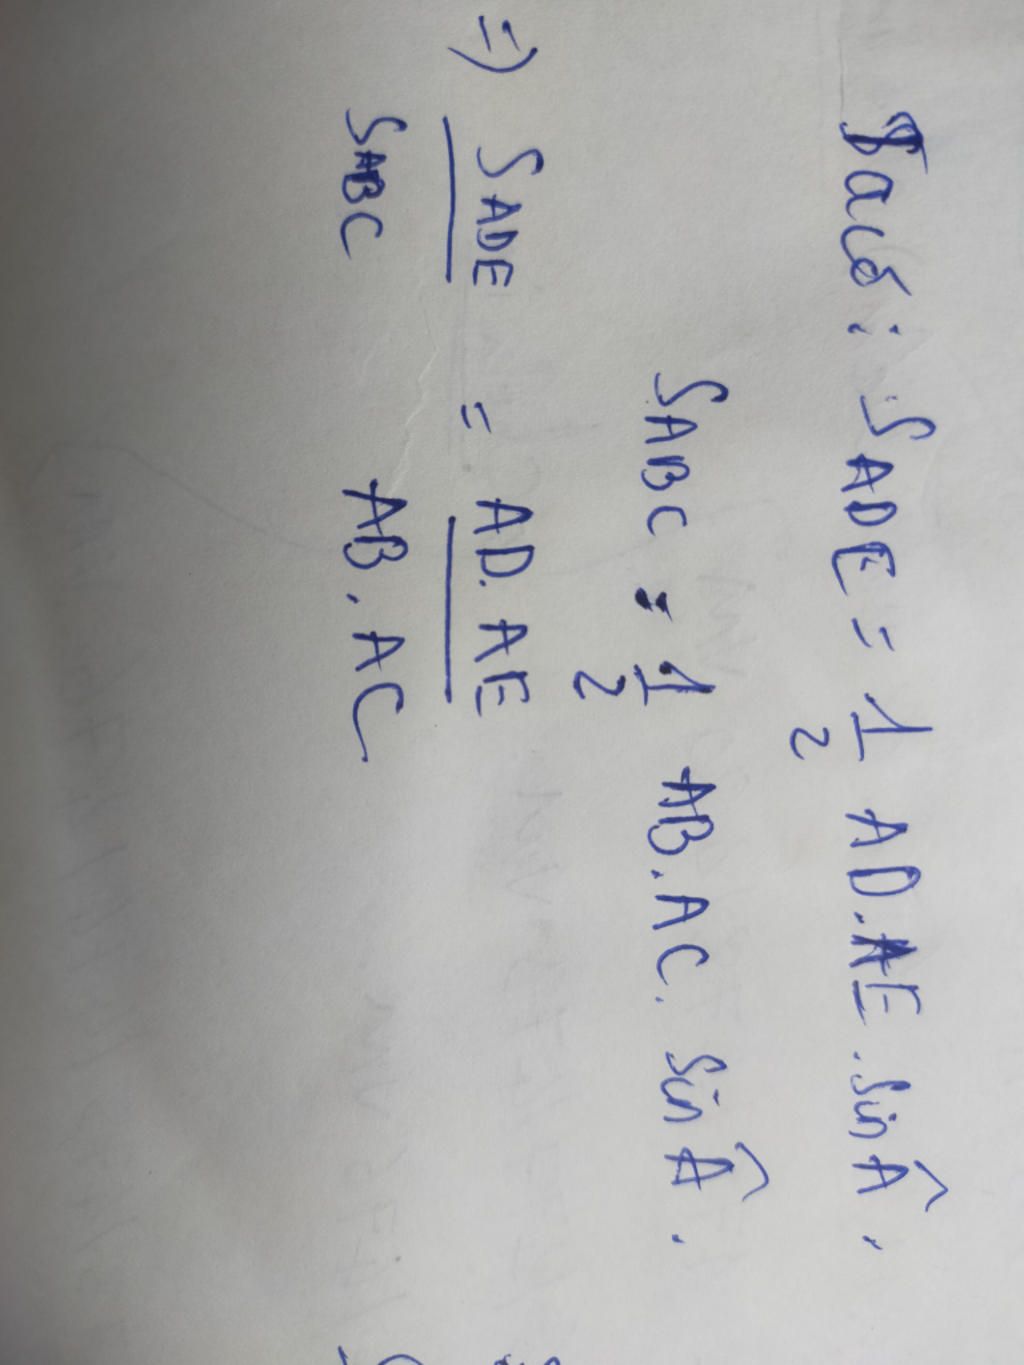 Ta có: SADE = 1/2 AD.AE.sin Â.
SABC = 1/2 AB.AC. sin Â.
=) SADE/SABC = AD.AE/AB.AC